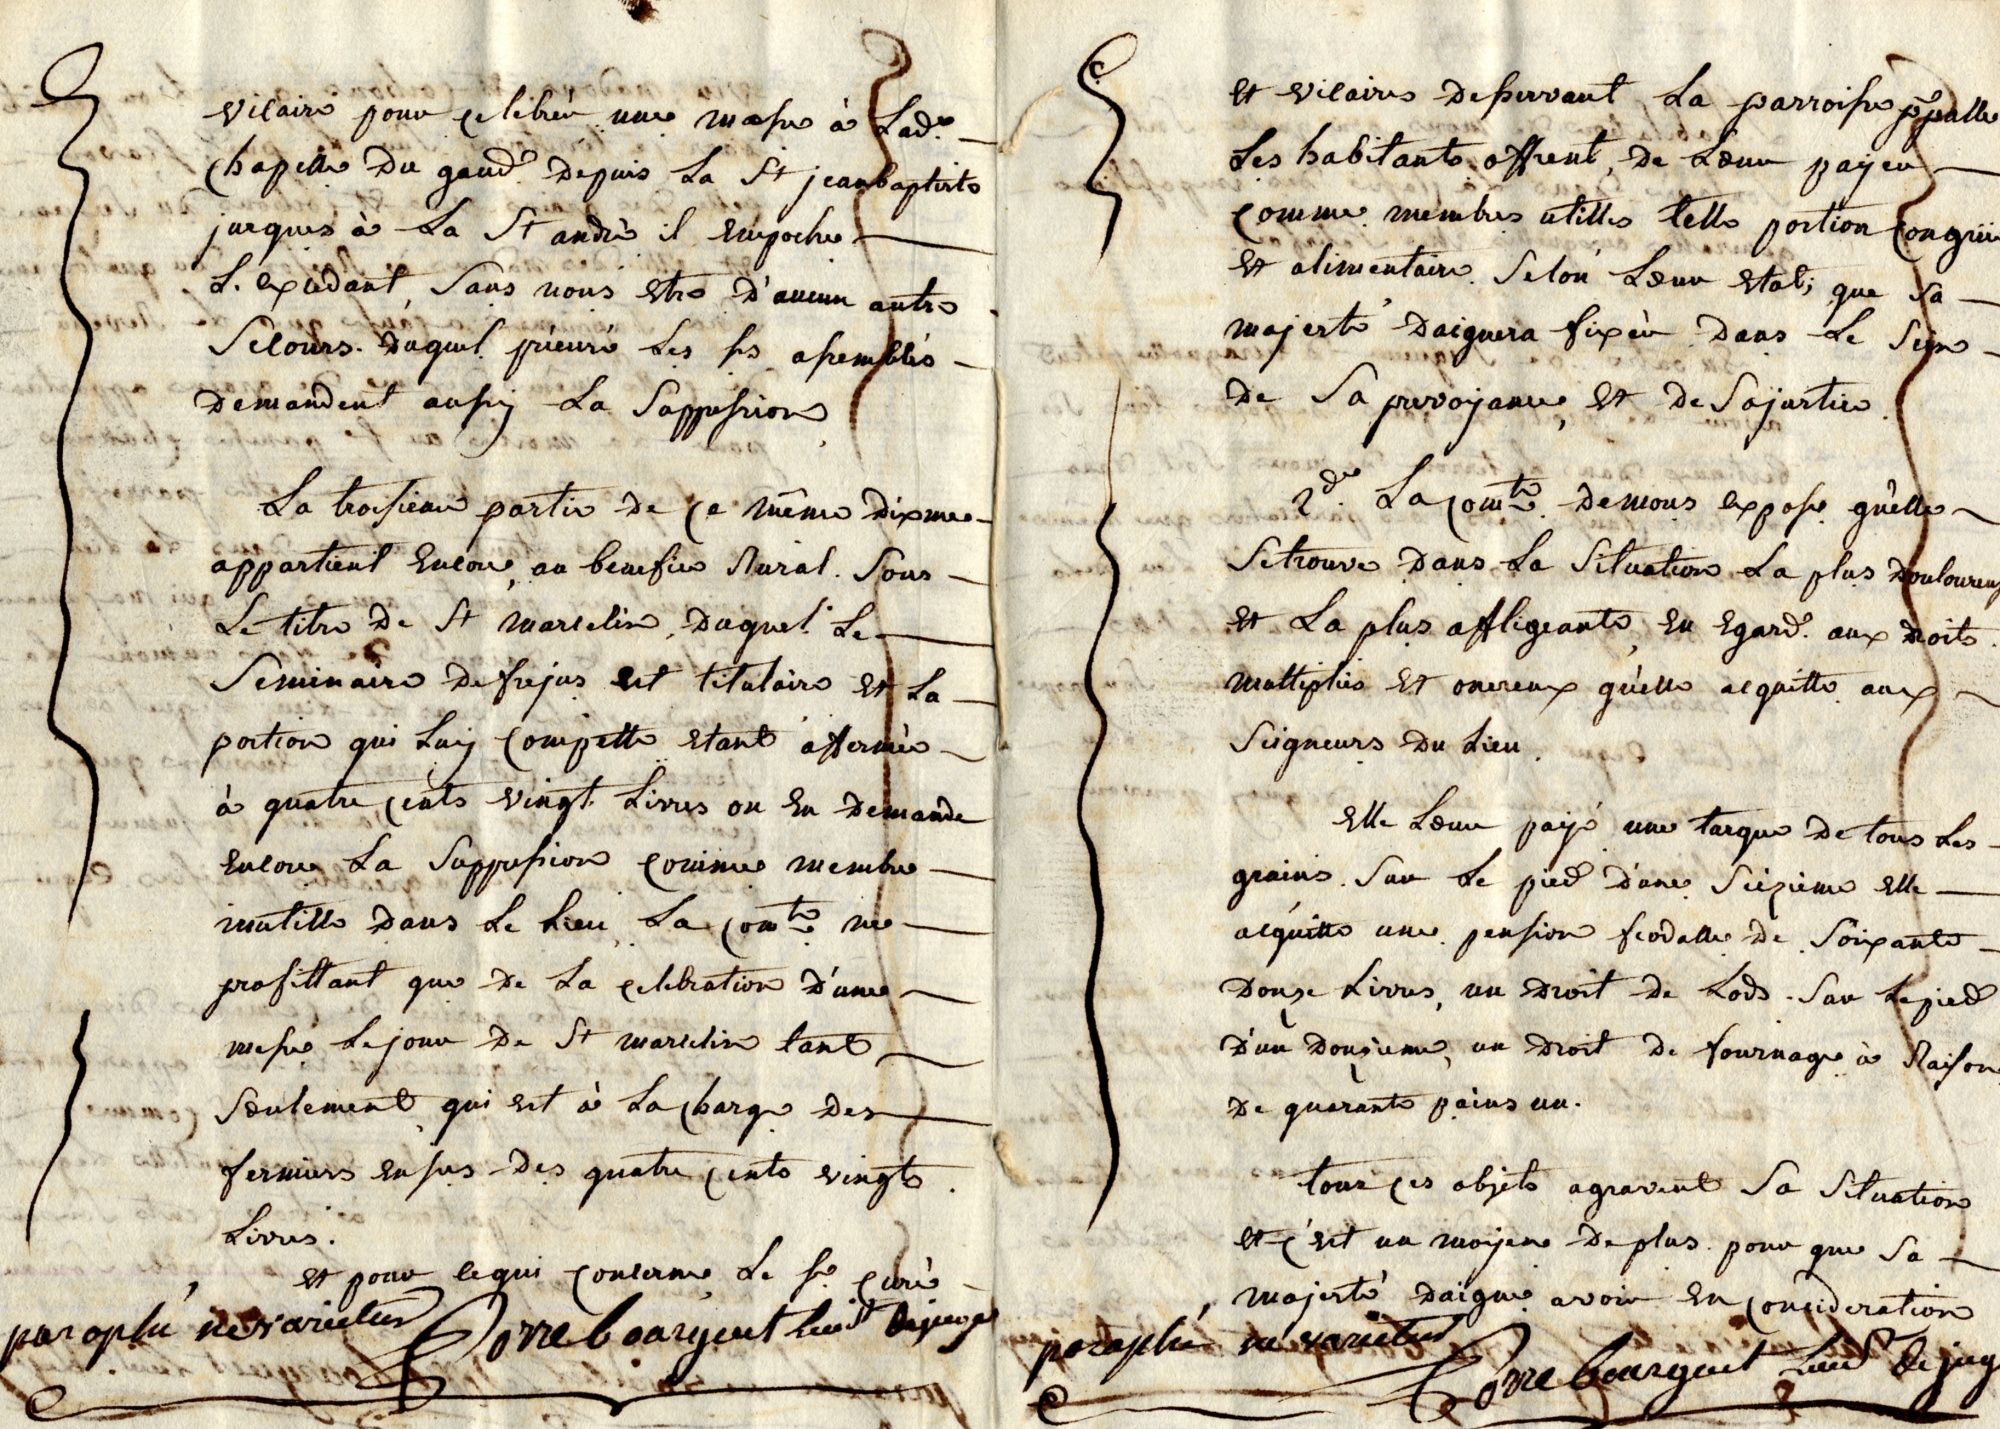 vicaire pour celebrér une messe à Lad.e
chapelle du gaud.e depuis La St jeanbaptiste
jusques à La St andré il empoche
L'excedant, sans nous etre d'aucun autre
secours. duquel prieuré Les srs assemblés
demandent aussy La suppression
La troisieme partie de ce même dixme
appartient encore, au benefice Rural. sous
Le titre de St marcelin, duquel Le
seminaire defrejus est titulaire et La
portion qui Luy compette etant affermée
à quatre cents vingt Livres on en demande
encore La suppression comme membre
inutille dans Le Lieu, La com.té ne
profittant que de La celebration d'une
messe Lejour de St marcelin tant
seulement, qui est à La charge des
fermiers ensus des quatre cents vingts
Livres.
et pour cequi concerne Le sr curé
paraphé ne varietur Gorrebourguet Lieut de juge
et vicaires desservant La parroisse p.palle
Les habitants offrent, de Leur payer
comme membres utilles telle portion congrüe
et alimentaire selon Leur etat; que sa
majesté daignera fixér dans Le sein
de sa prevoyance, et de sajustice.
2.de La com.té demons expose qu'elle
setrouve dans La situation La plus douloureuse
et La plus affligeante, en egard. aux droits
multipliés et onereux qu'elle acquitte aux
seigneurs du Lieu.
elle Leur payé une tasque de tous Les
grains. sur Le pied d'une seizieme elle
acquitte une pension feodalle de soixante
douze Livres, un droit de Lods. sur Lepied
d'un douzieme, un droit de fournage à Raison
de quarante pains un.
tous ces objets agravent sa situation
et c'est un moyen deplus pour que sa
majesté daigne avoir en consideration
paraphé ne varietur Gorrebourguet Lieut de jug